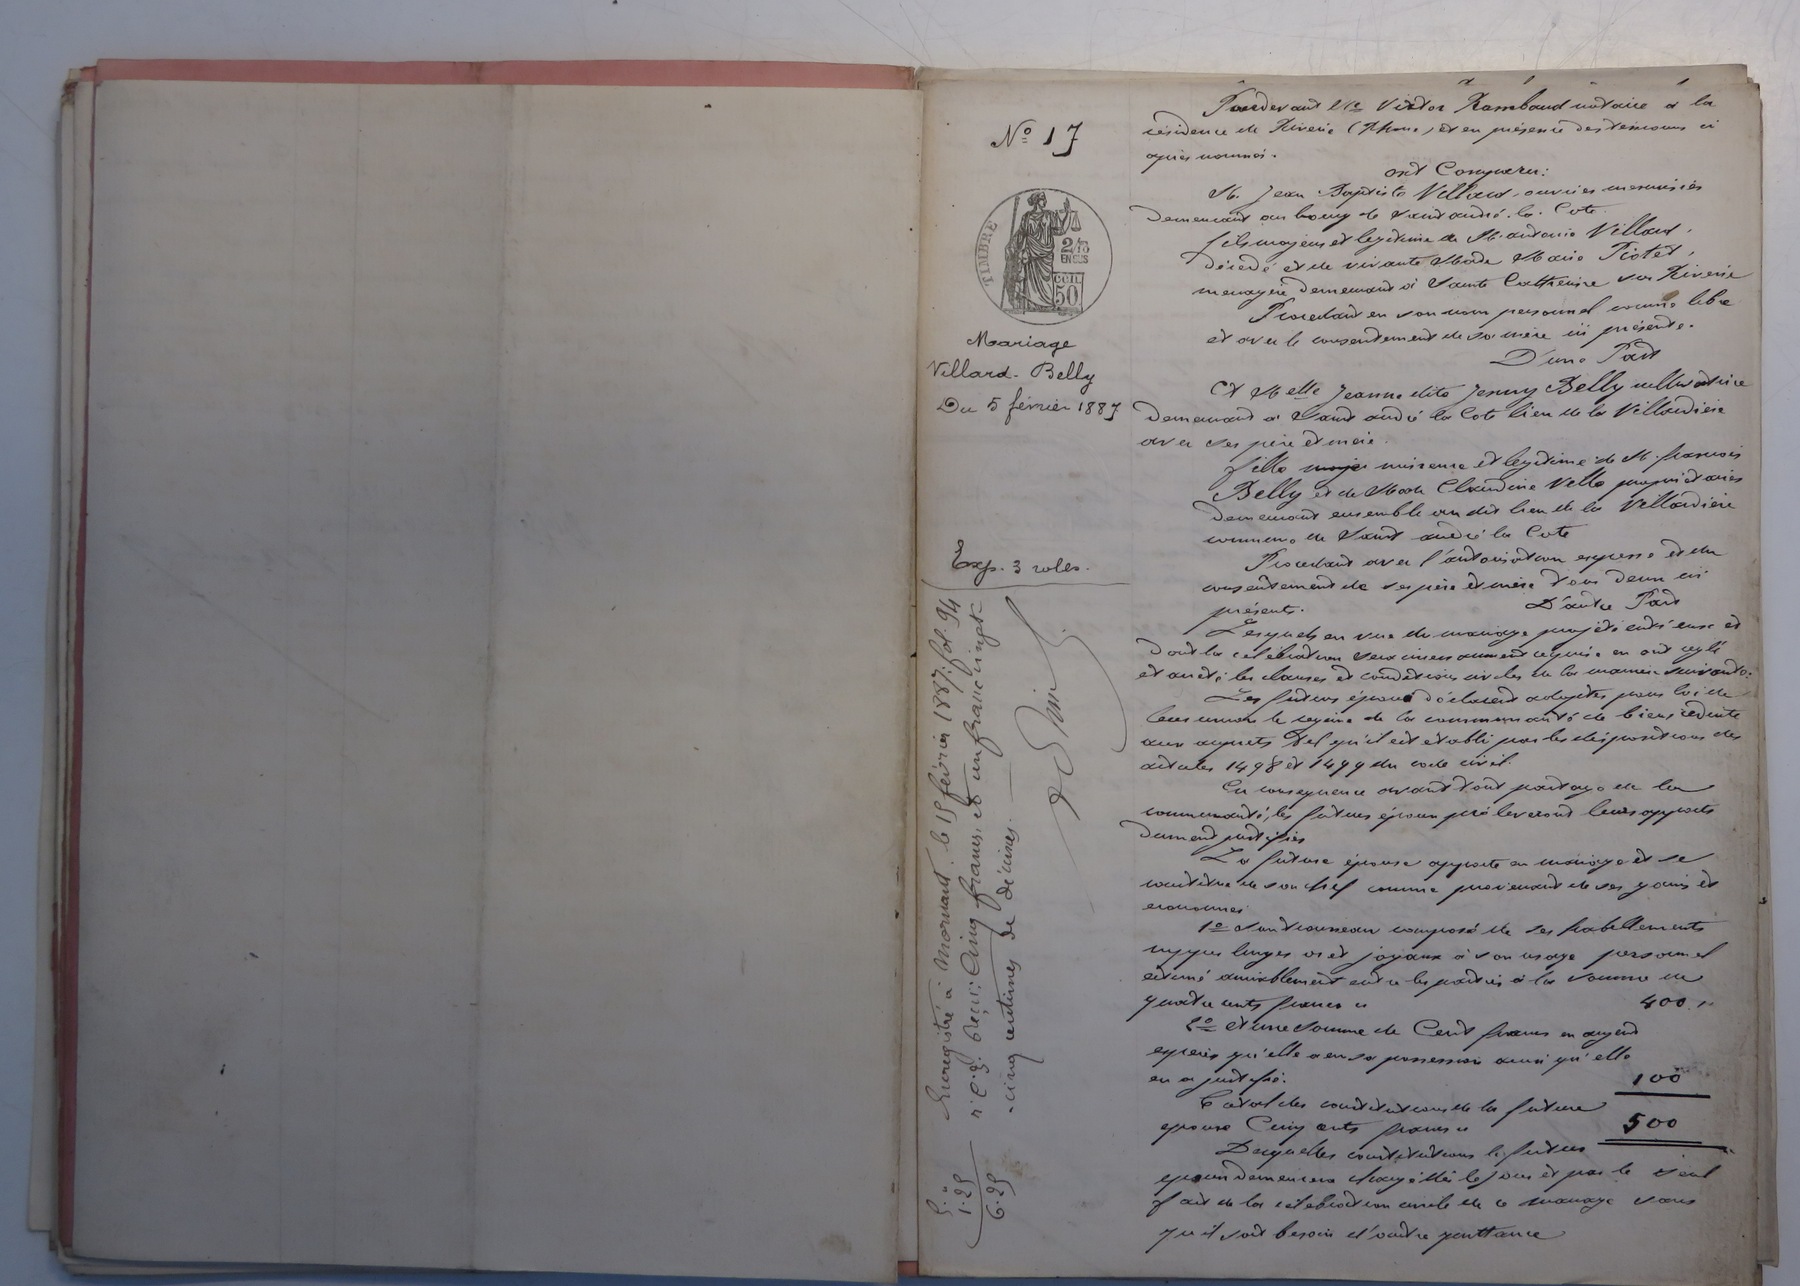 Nº 17
TIMBRE
2/10
EN SUS
CEN.
50
Mariage
Villard-Belly
Du 5 février 1887
Exp. 3 roles.
Enregistré à Mornant, le 15 février 1887, fol. 94
n° C. 3. Reçu: Cinq francs, et un franc vingt
-cinq centimes de décimes.
5. "
1.25
6.25
Pardevant Me Victor Rambaud notaire à la
résidence de Riverie (Rhone) et en présence des témoins ci
après nommés.
ont Comparu:
M. Jean Baptiste Villard, ouvrier menuisier
demeurant au bourg de Saint andré. la. Cote.
fils majeur et legitime de M. antoine Villard,
décédé et de vivante Made Marie Piotet,
menagère demeurant à Sainte Catherine sur Riverie
Procedant en son nom personnel comme libre
et avec le consentement de sa mère ici présente.
D'une Part
Et Melle Jeanne dite Jenny Belly cultivatrice
demeurant à Saint andré la Cote lieu de la Villardière
avec ses père et mère.
fille mineure et legitime de M. françois
Belly et de Made Claudine Velle propriétaires
demeurant ensemble au dit lieu de la Villardière
commune de Saint andré la Cote
Procedant avec l'autorisation expresse et du
consentement de ses père et mère tous deux ici
présents.
D'autre Part
Lesquels en vue du mariage projeté entr'eux et
dont la célébration sera incessamment requise en ont reglé
et arrêté les clauses et conditions civiles de la manière suivante.
Les futurs époux déclarent adopter pour loi de
leur union le regime de la communauté de biens réduite
aux acquets tel qu'il est établi par les dispositions des
articles 1498 et 1499 du code civil.
En consequence avant tout partage de la
communauté, les futurs époux préleveront leurs apports
dument justifiés
La future épouse apporte en mariage et se
constitue de son chef comme provenant de ses gains et
economies
1º Son trousseau composé de ses habillements
nippes linges or et joyaux à son usage personnel
estimé amiablement entre les parties à la somme de
quatre cents francs ci 400 "
2º Et une somme de Cent francs en argent
especes qu'elle a en sa possession ainsi qu'elle
en a justifié. 100
Total des constitutions de la future
epouse Cinq cents francs ci 500
Desquelles constitutions le futur
epoux demeurera chargé dès le jour et par le seul
fait de la celebration civile de ce mariage sans
qu'il soit besoin d'autre quittance